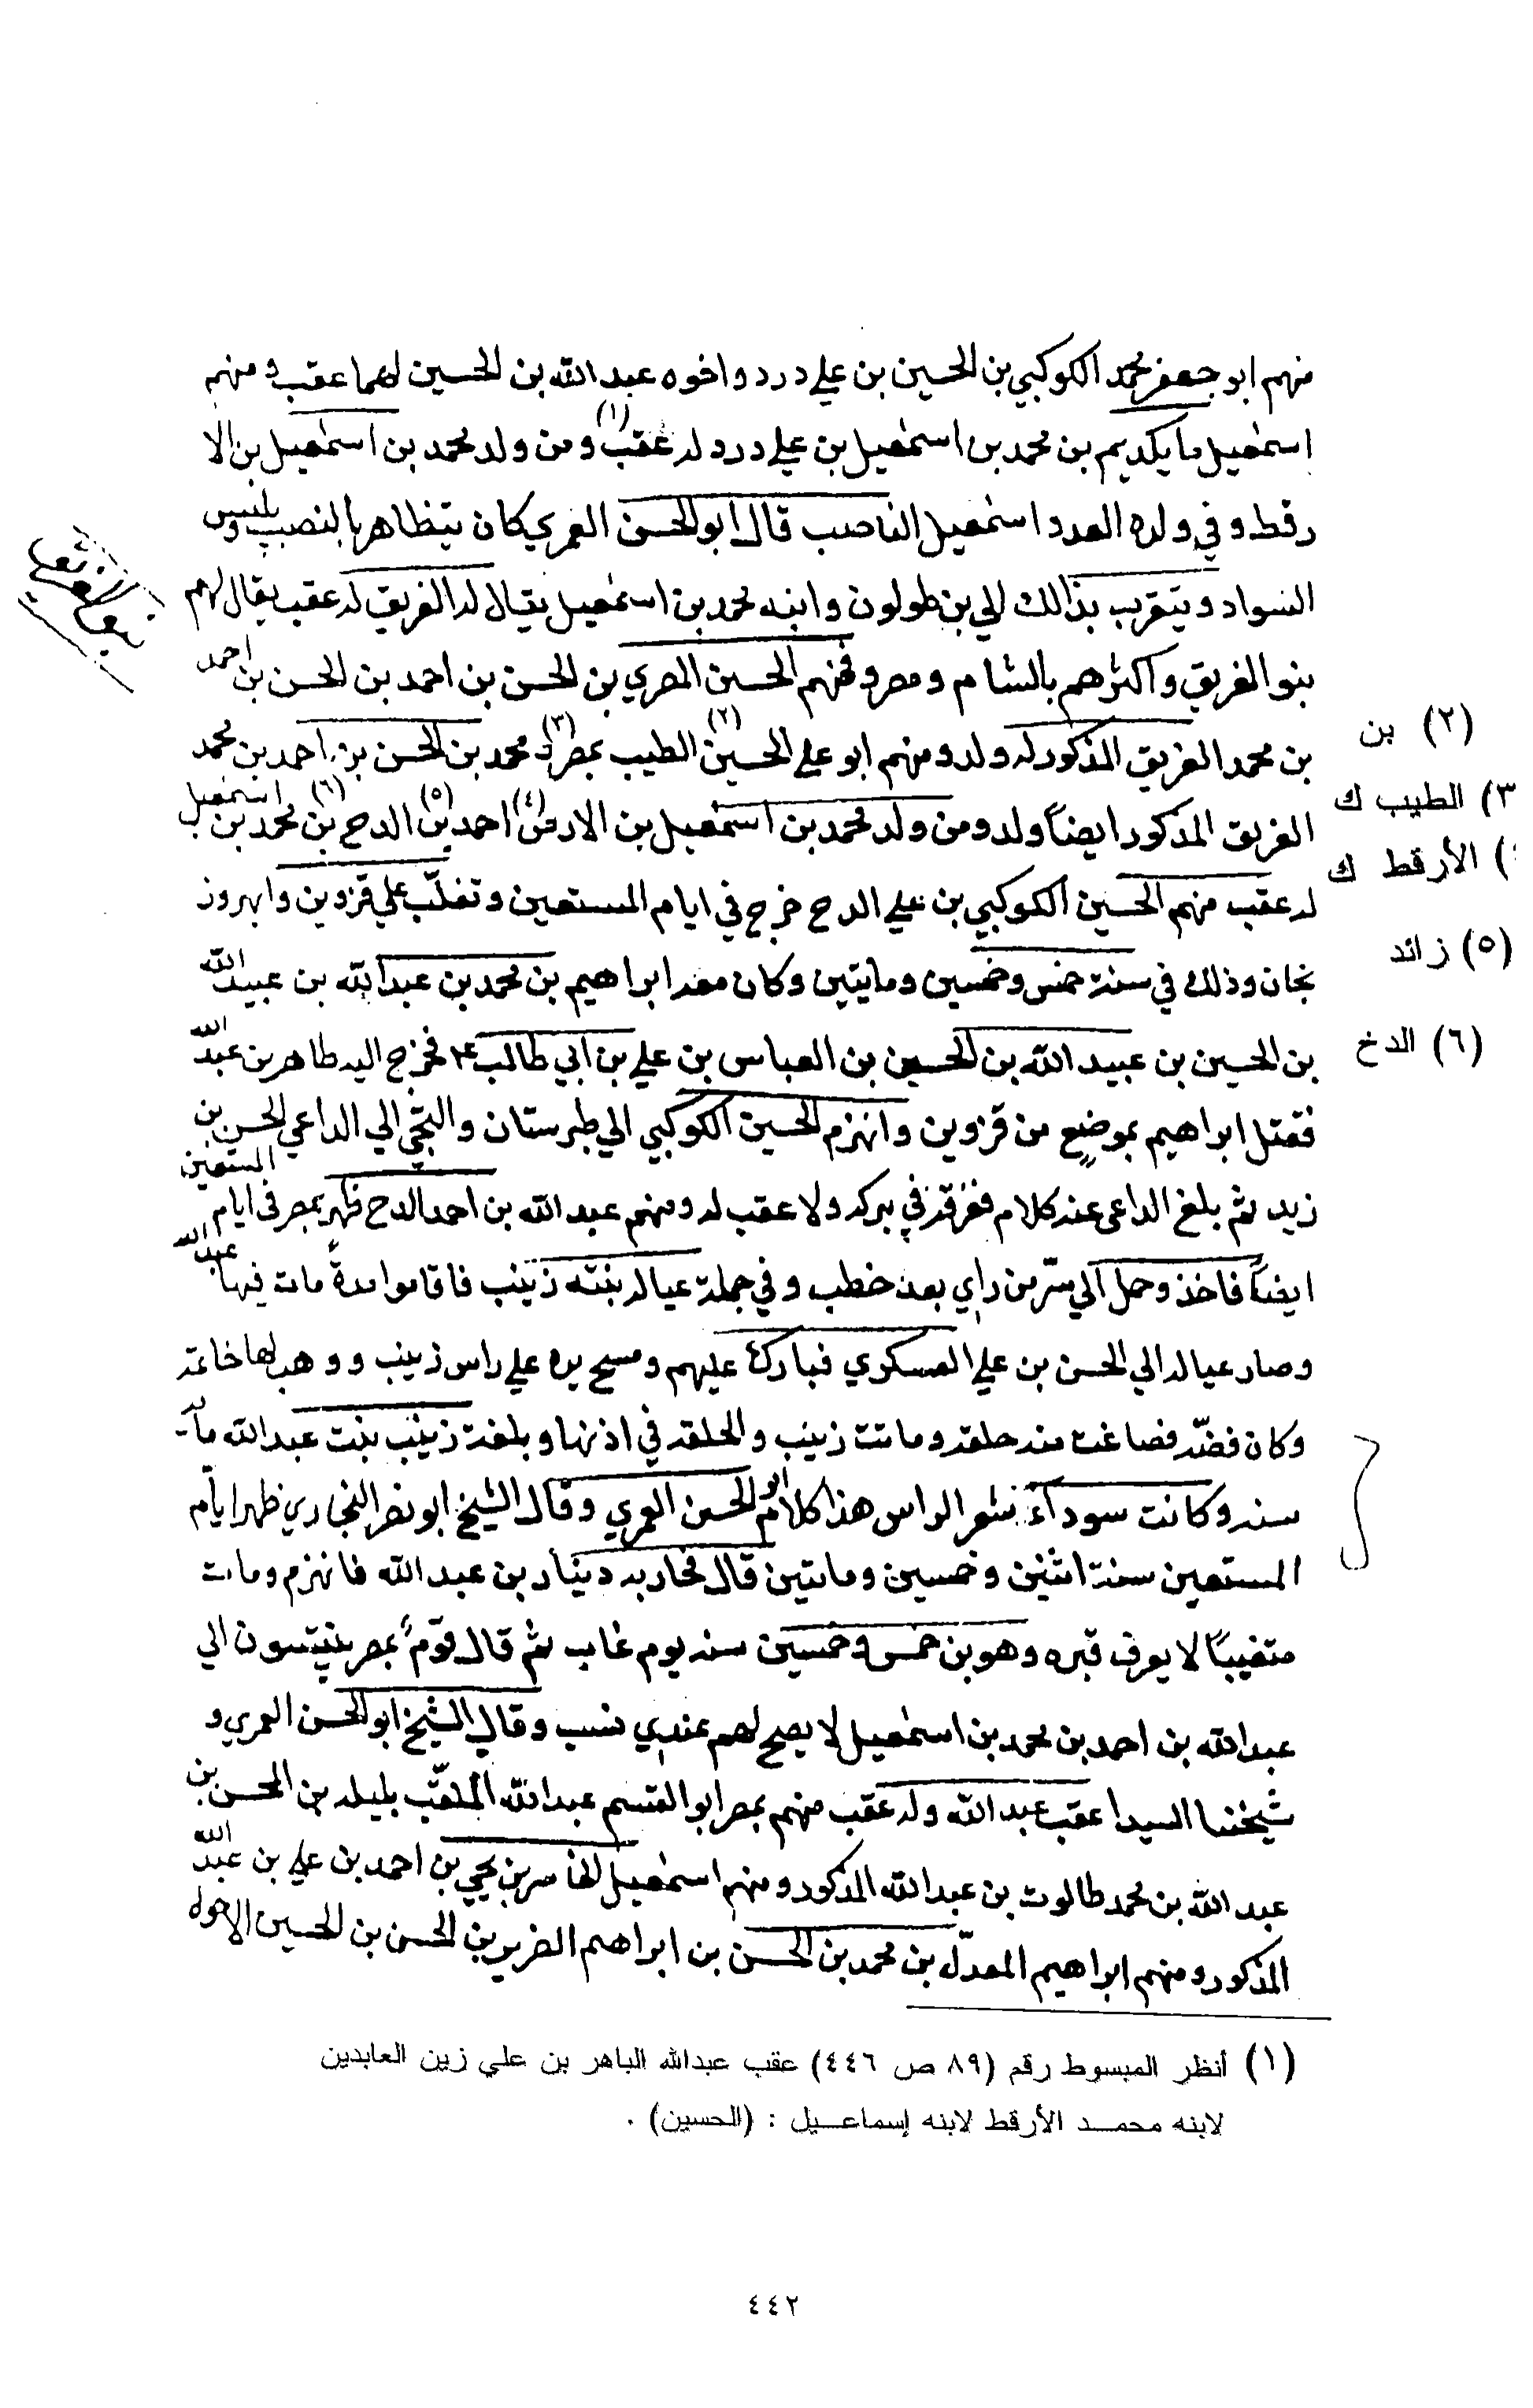 منهم ابو جعفر محمد الكوكبي بن الحسين بن علي دردد واخوه عبد الله بن الحسين لهما عقب و منهم
اسمعيل مايكديم بن محمد بن اسمعيل بن علي دردد له عقب (١) ومن ولد محمد بن اسمعيل بن الا
رقط و في ولده العدد اسمعيل الناصب قال ابو الحسن العمري كان يتظاهر بالنصب ويلبس
السواد ويتقرب بذالك الي بن طولون وابنه محمد بن اسمعيل يقال له الغريق له عقب يقال لهم
بنو الغريق واكثرهم بالشام ومصر و فمنهم الحسين المصري بن الحسن بن احمد بن الحسن بن احمد
بن محمد الغريق المذكور له ولد ومنهم ابو علي الحسين (٢) الطيب بمصر (٣) محمد بن الحسن بن احمد بن محمد
الغريق المذكور ايضاً ولد ومن ولد محمد بن اسمعيل بن الارقط (٤) احمد بن (٥) الدح بن (٦) محمد بن اسمعيل
له عقب منهم الحسين الكوكبي بن علي الدح خرج في ايام المستعين وتغلّب علي قزوين وابهر وز
نجان وذلك في سنة خمس وخمسين ومايتين وكان معه ابراهيم بن محمد بن عبد الله بن عبيد الله
بن الحسين بن عبيد الله بن الحسين بن العباس بن علي بن ابي طالب ع فخرج اليه طاهر بن عبد الله
فقتل ابراهيم بموضعٍ من قزوين وانهزم الحسين الكوكبي الي طبرستان والتجي الي الداعي الحسن بن
زيد ثم بلغ الداعي عنه كلام فغرقه في بركه ولا عقب له ومنهم عبد الله بن احمد الدح ظهر بمصر في ايام المستعين
ايضاً فاخذ وحمل الي سرّ من راي بعد خطب وفي جملة عياله بنته زينب فاقاموا مدةً مات فيها عبد الله
وصار عياله الي الحسن بن علي العسكري فبارك عليهم ومسح يده علي راس زينب ووهب لها خاتمه
وكان فضّه فصاغت منه حلقه وماتت زينب والحلقه في اذنها وبلغت زينب بنت عبد الله مأ ية
سنه وكانت سودآء شعر الراس هذا كلام ابو الحسن العمري وقال الشيخ ابو نصر البخاري ظهر ايام
المستعين سنة اثنين وخمسين ومايتين قال فحاربه دينار بن عبد الله فانهزم ومات
متغيباً لا يعرف قبره وهو بن خمس وخمسين سنه يوم غاب ثم قال قومٌ بمصر ينتسبون الي
عبد الله بن احمد بن محمد بن اسمعيل لا يصح لهم عندي نسب وقال الشيخ ابو الحسن العمري و
شيخنا السيد اعقب عبد الله وله عقب منهم بمصر ابو القسم عبد الله الملقّب بليله بن المحسن بن
عبد الله بن محمد طالوت بن عبد الله المذكور ومنهم اسمعيل بن يحيي بن احمد بن علي بن عبد الله
المذكور ومنهم ابراهيم المعدّل بن محمد بن الحسن بن ابراهيم الضرير بن الحسن بن الحسين الاحول
(٢) بن
٣) الطيب ك
٤) الأرقط ك
(٥) زائد
(٦) الدخ
(١) أنظر المبسوط رقم (٨٩ ص ٤٤٦) عقب عبدالله الباهر بن علي زين العابدين
لابنه محمد الأرقط لابنه إسماعيل : (الحسين) .
٤٤٢